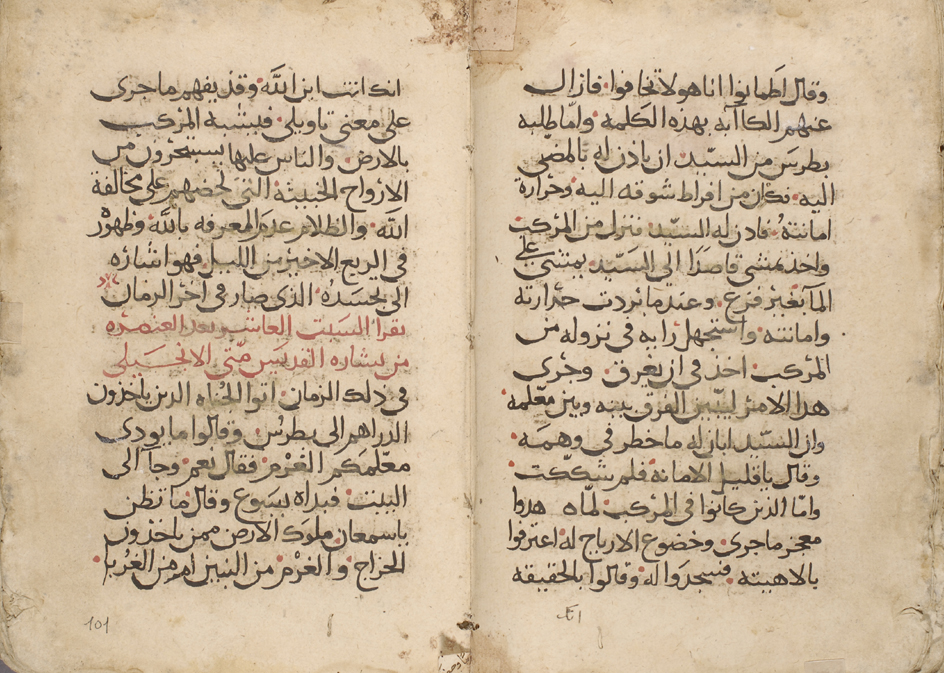 وقال اطمانوا انا هو لا تخافوا فازال
عنهم الكاآبه بهذه الكلمه واما طلبه
بطرس من السيد ان ياذن له بالمضي
اليه فكان من افراط شوقه اليه وحرارة
امانته فاذن له السيد فنزل من المركب
واخذ يمشي قاصدا الى السيد يمشي على
الما بغير فزع وعند ما بردت حرارته
وامانته واستجهل رايه في نزوله من
المركب اخذ في ان يغرق وجرى
هذا الامر ليبين الفرق بينه وبين معلمه
وان السيد ابان له ما خطر في وهمه
وقال يا قليل الامانه فلم شككت
واما الذين كانوا في المركب لما هدوا
معجز ما جرى وخضوع الارياح له اعترفوا
بالاهيته فسجدوا له وقالوا بالحقيقه
انك انت ابن الله وقد يفهم ما جرى
على معنى تاويلي فيشبه المركب
بالارض والناس عليها يستنجرون من
الارواح الخبيثه التي تحضهم على مخالفة
الله والظلام عدم المعرفه بالله وظهور
في الربع الاخير من الليل فهو اشاره
الى تجسده الذي صار في اخر الزمان
يقرا السبت العاشر بعد العنصره
من بشاره القديس متى الانجيلي
في ذلك الزمان اتوا الجباه الذين ياخذون
الدراهم الى بطرس وقالوا ما يودي
معلمكم الغرم فقال نعم وجا الى
البيت فبداه يسوع وقال ما تظن
يا سمعان ملوك الارض ممن ياخذون
الخراج والغرم من البنين ام من الغربا
101